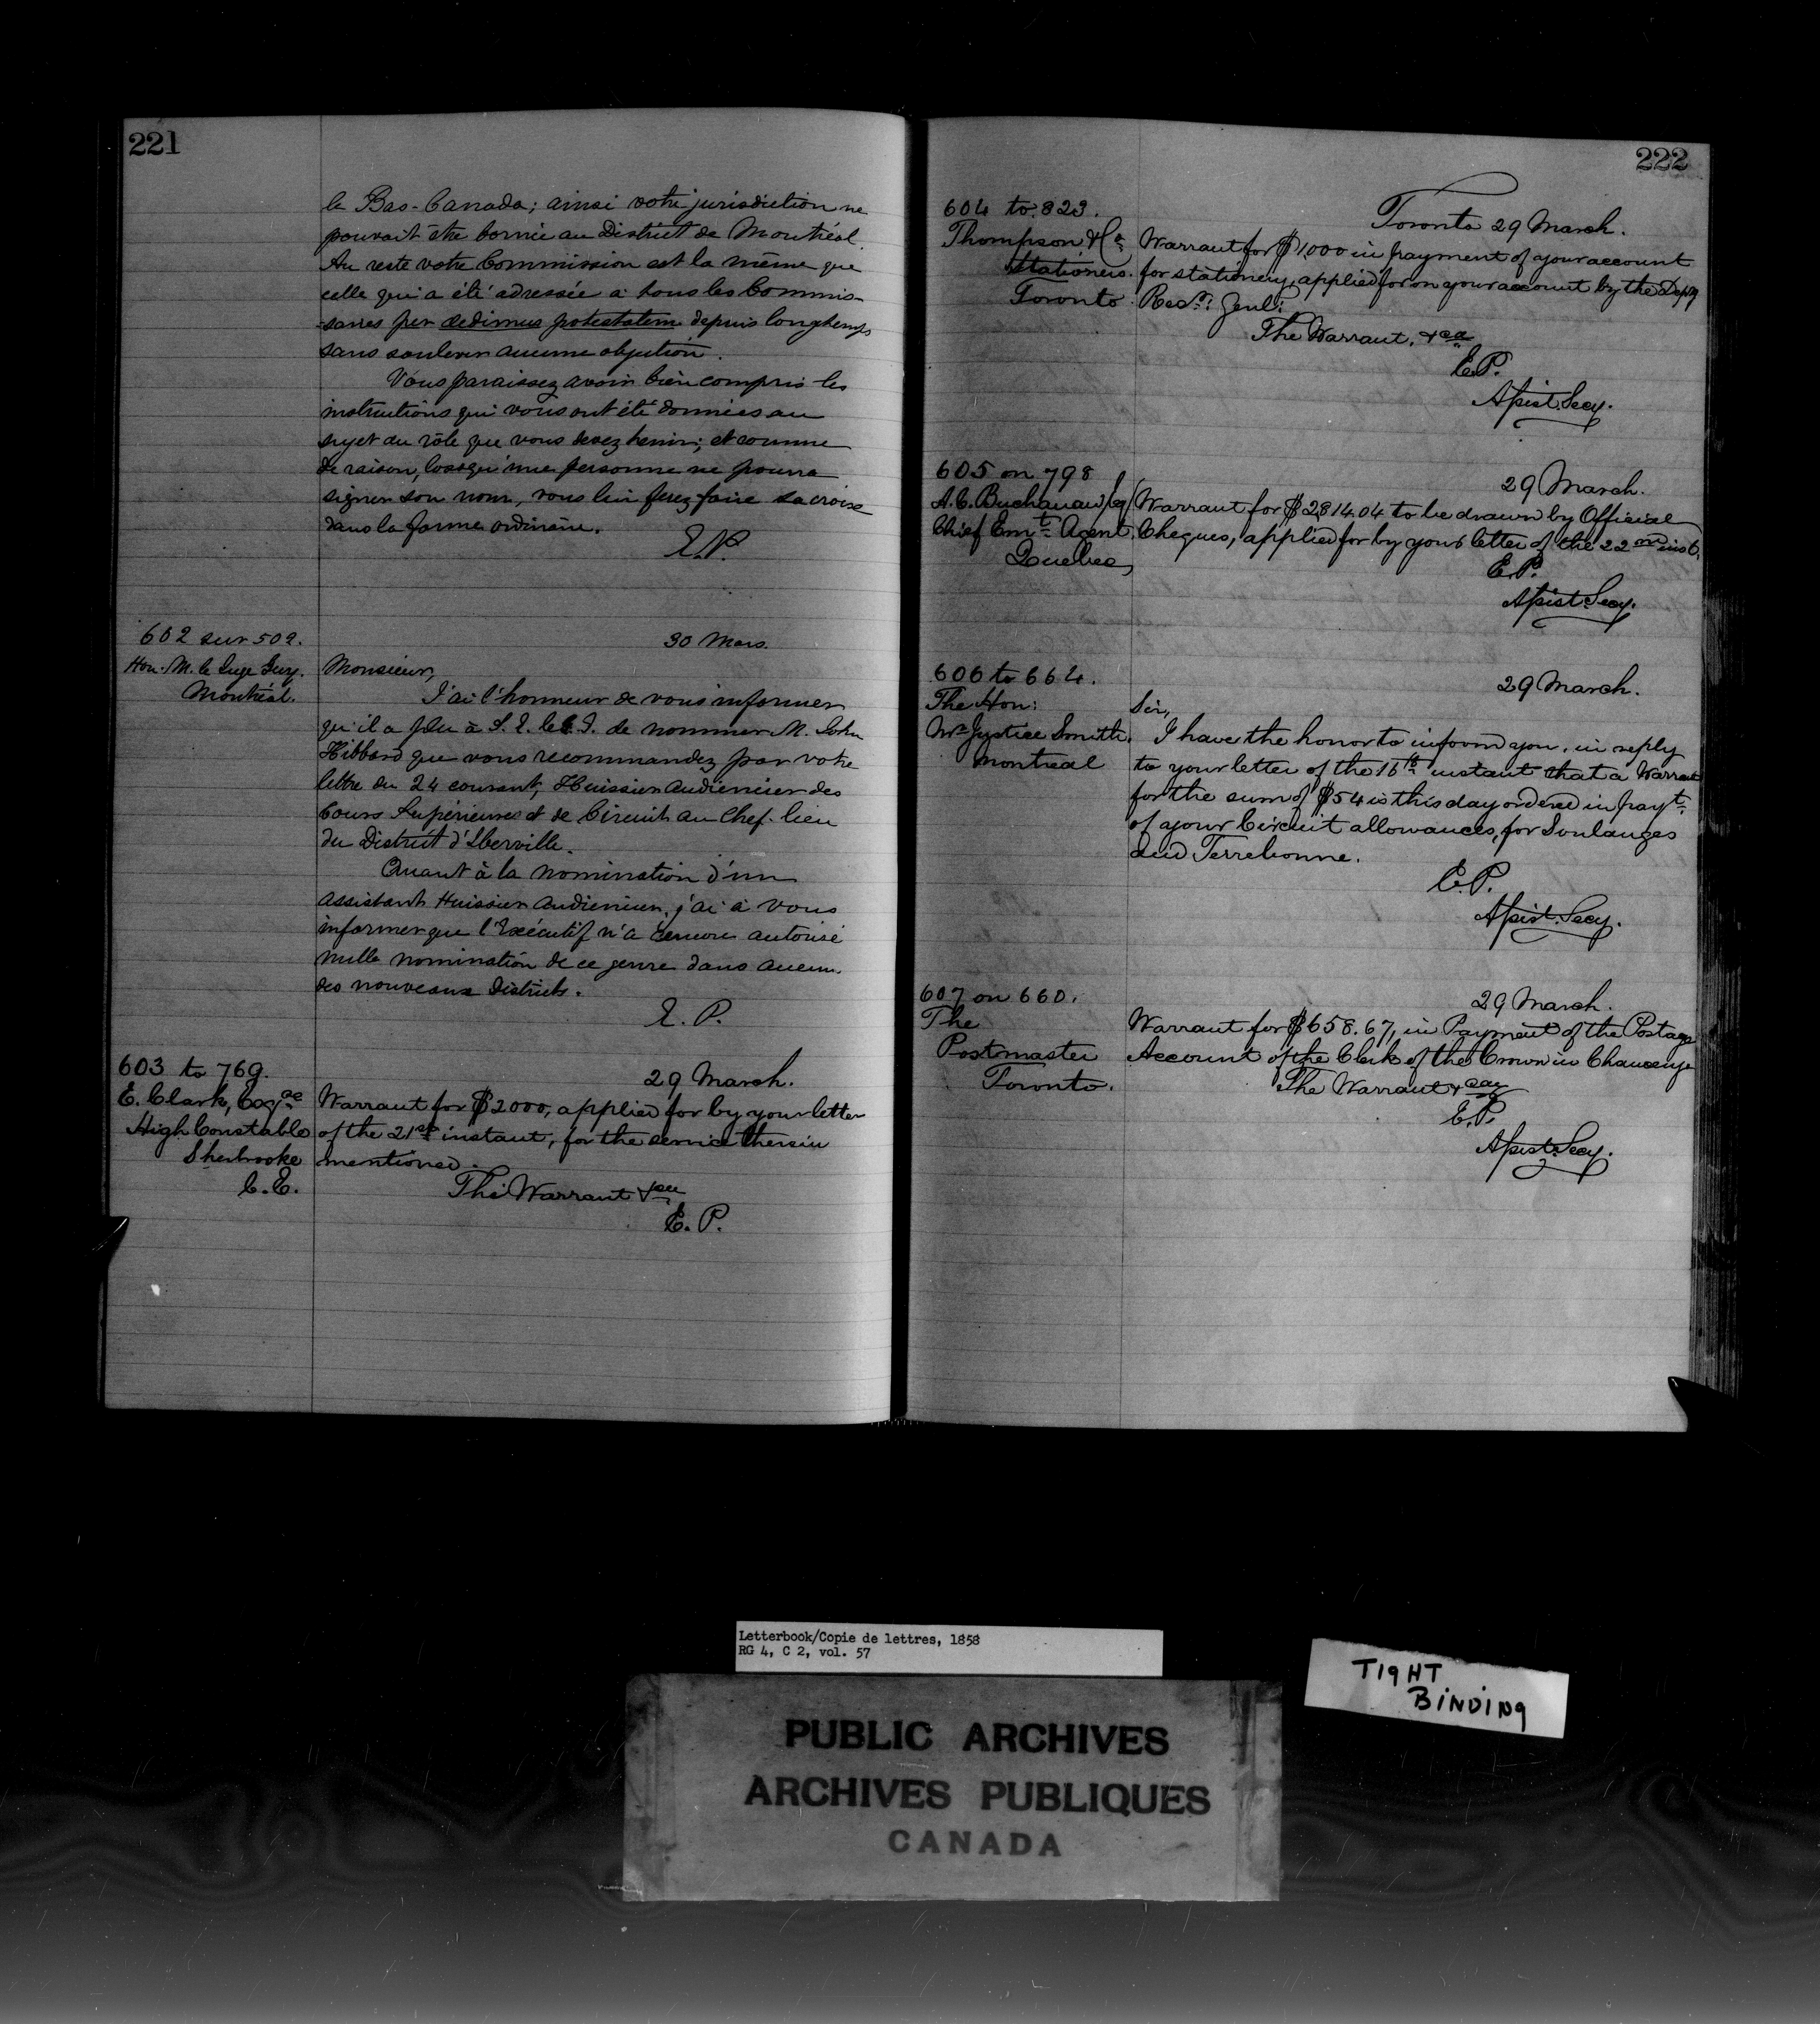 221
le Bas-Canada; ainsi votre jurisdiction ne
pouvait être bornée au District de Montréal.
Au reste votre Commission est la même que
celle qui a été adressée à tous les Commis-
-saires per dedimus potestatem depuis longtemps
sans soulever aucune objection.
Vous paraissez avoir bien compris les
instructions qui vous ont été données au
sujet du rôle que vous devez tenir; et comme
de raison, lorsqu'une personne ne pourra
signer son nom, vous lui ferez faire sa croix
dans la forme ordinaire.
E.P.
602 sur 502.
Hon. M. le Juge Guy.
Montréal.
30 Mars.
Monsieur,
J'ai l'honneur de vous informer
qu'il a plu à S. E. le G. de nommer M. John
Hibbard que vous recommandez par votre
lettre du 24 courant, Huissier audiencier des
Cours Supérieures et de Circuit au Chef-lieu
du District d'Iberville.
Quant à la nomination d'un
assistant Huissier audiencier, j'ai à vous
informer que l'Exécutif n'a encore autorisé
nulle nomination de ce genre dans aucun
des nouveaux Districts.
E. P.
603 to 769.
E. Clark, Esq.
High Constable
Sherbrooke
C.E.
29 March.
Warrant for $2000, applied for by your letter
of the 21st instant, for the service therein
mentioned.
The Warrant &ca
E. P.
222
604 to 823.
Thompson & Co
Stationers.
Toronto
Toronto 29 March.
Warrant for $1000 in payment of your account
for stationery, applied for on your account by the Depy
Recr. Genl:
The Warrant, &ca
E.P.
Assist. Secy.
605 on 798
A. C. Buchanan Esq
Chief Emt. Agent.
Quebec
29 March.
Warrant for $2814.04 to be drawn by Official
Cheques, applied for by your letter of the 22nd inst.
E.P.
Assist. Secy.
606 to 664.
The Hon:
Mr. Justice Smith.
Montreal
29 March.
Sir,
I have the honor to inform you, in reply
to your letter of the 16th instant that a Warrant
for the sum of $54 is this day ordered in payt.
of your Circuit allowances, for Soulanges
and Terrebonne.
E.P.
Assist. Secy.
607 on 660.
The
Postmaster
Toronto.
29 March.
Warrant for $658.67, in Payment of the Postage
Account of the Clerk of the Crown in Chancery
The Warrant &ca
E.P.
Assist. Secy.
Letterbook/Copie de lettres, 1858
RG 4, C 2, vol. 57
TIGHT
BINDING
PUBLIC ARCHIVES
ARCHIVES PUBLIQUES
CANADA